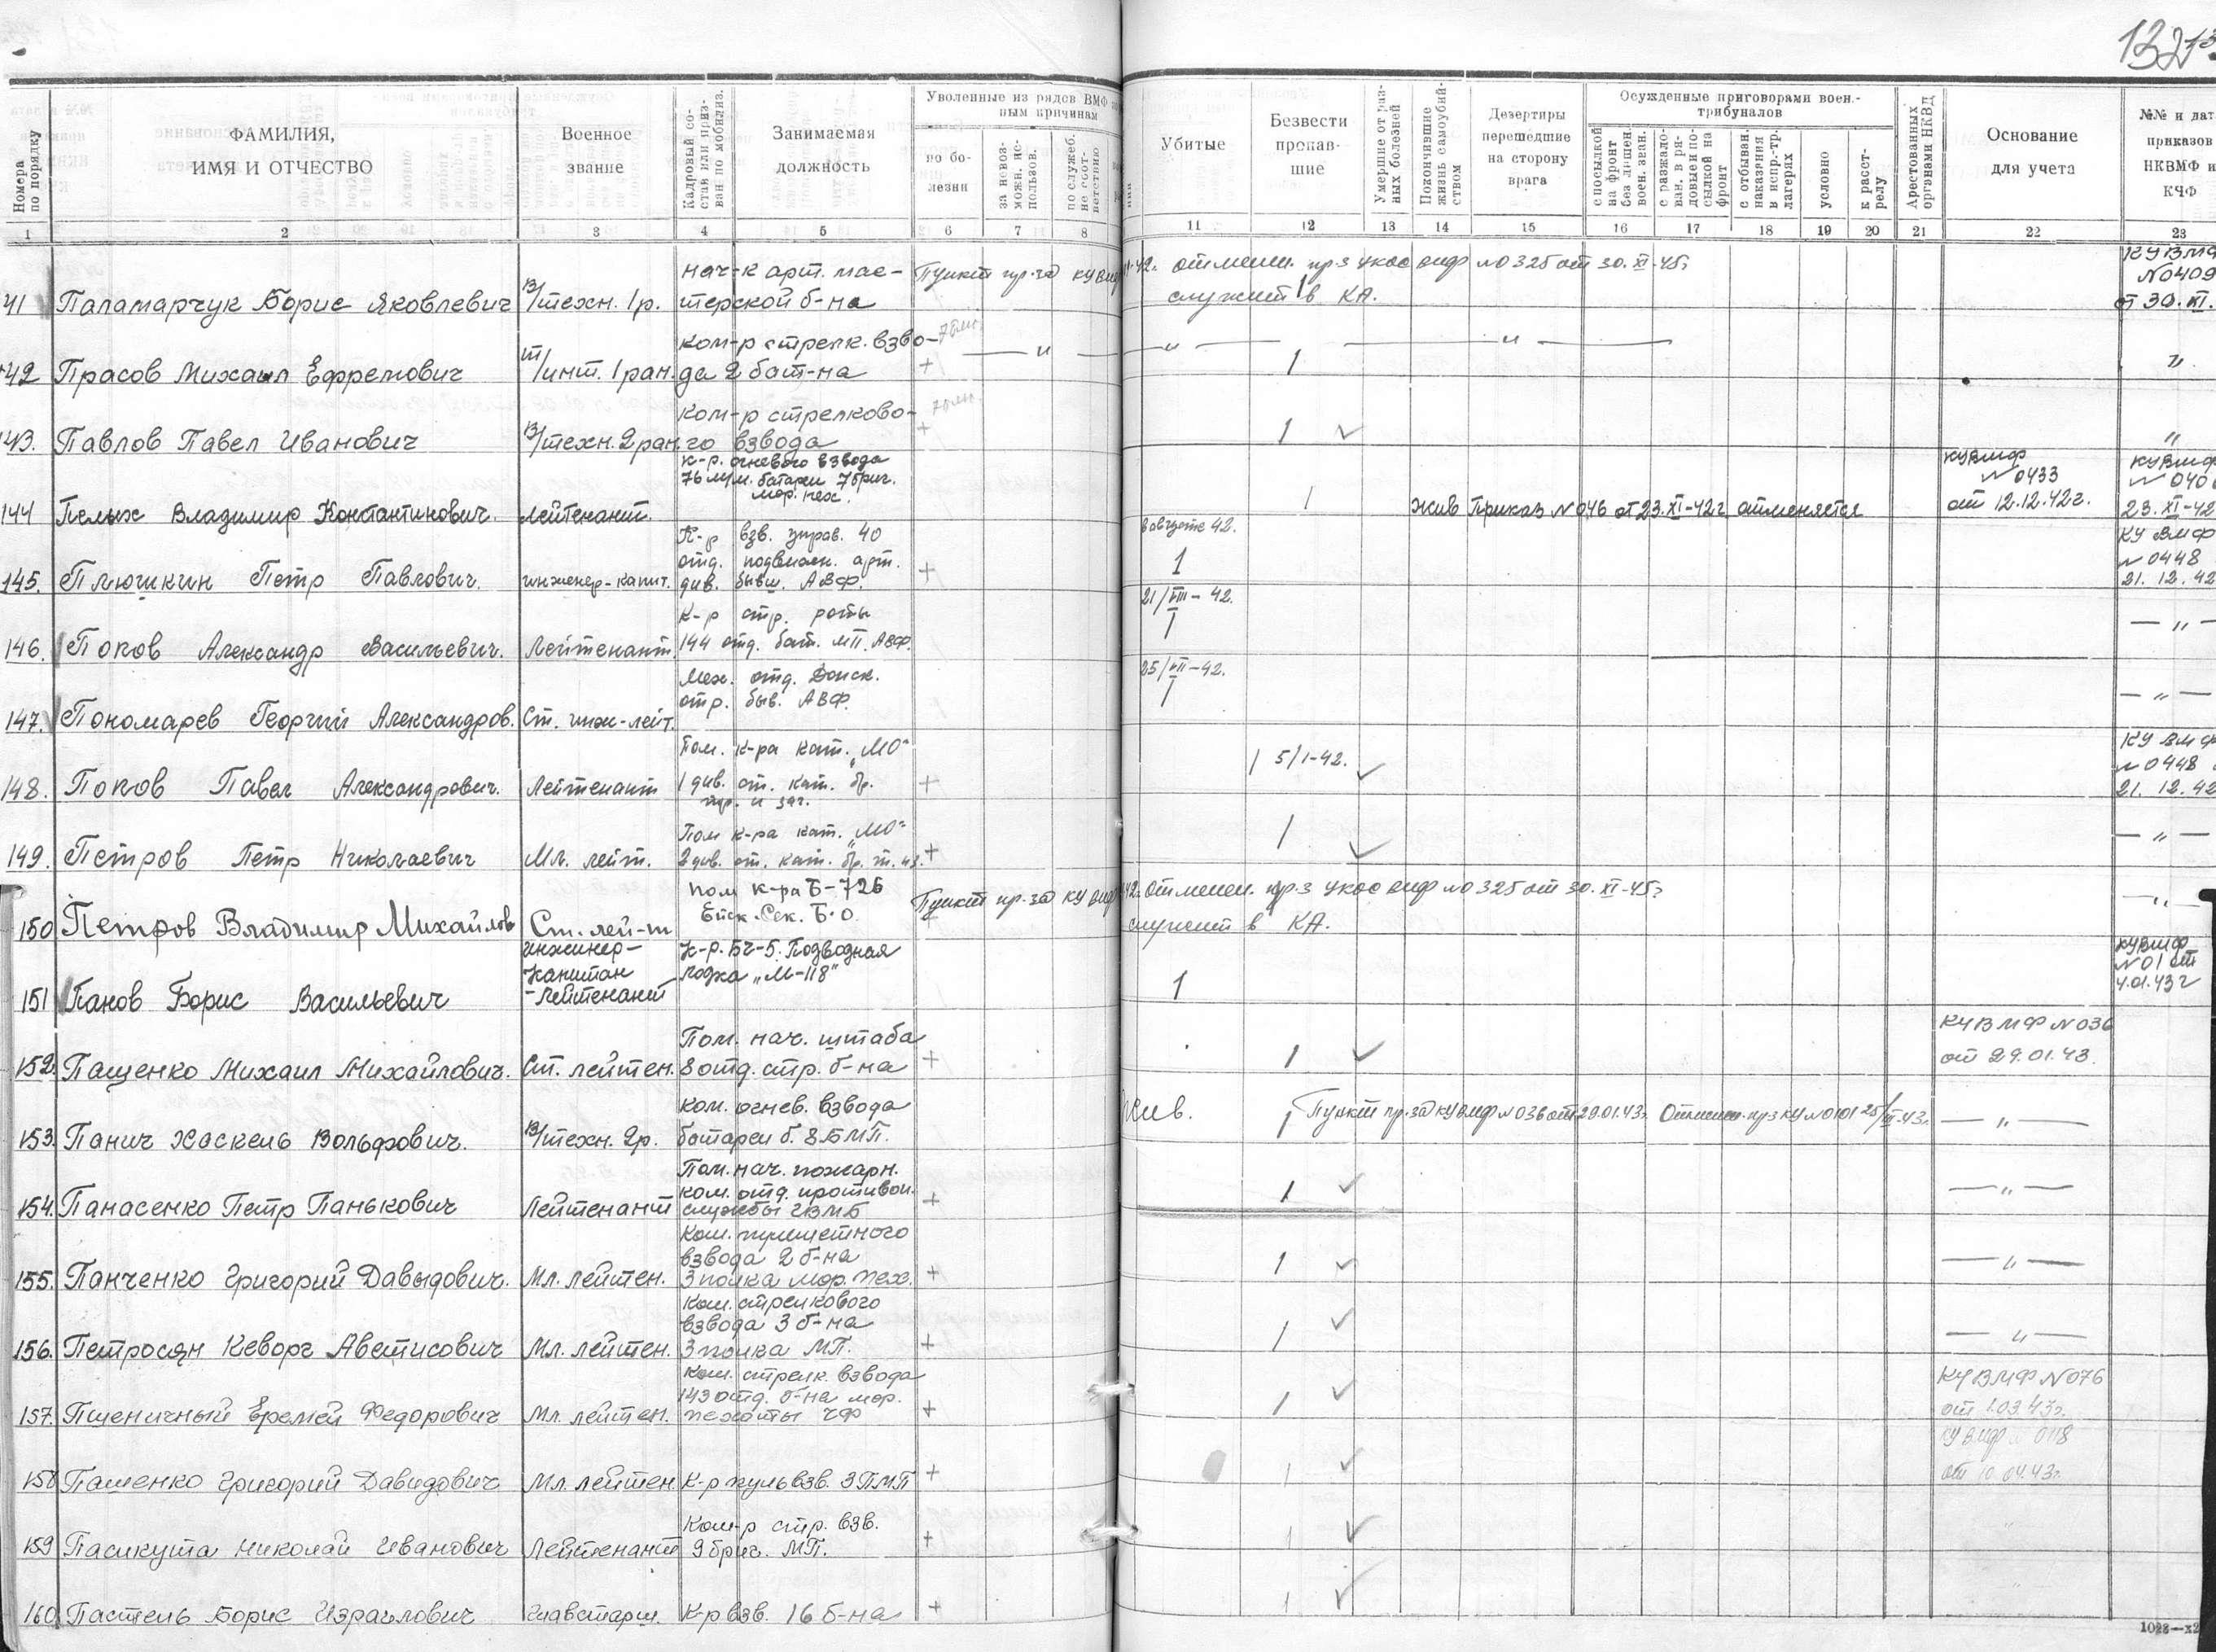 132
Номера по порядку
ФАМИЛИЯ,
ИМЯ И ОТЧЕСТВО
Военное
звание
Кадровый со-
став или приз-
ван по мобилиз.
Занимаемая
должность
Уволенные из рядов ВМФ
ным причинам
по бо-
лезни
за невоз-
можн. ис-
пользов.
по служеб.
несоот-
ветствию
Убитые
Безвести
пропав-
шие
Умершие от раз-
ных болезней
Покончившие
жизнь самоубий-
ством
Дезертиры
перешедшие
на сторону
врага
Осужденные приговорами воен.-
трибуналов
с посылкой
на фронт
без лишен.
воен. зван.
с разжало-
ван. в ря-
довые и по-
сылкой на
фронт
с отбыван.
наказания
в испр.-тр.
лагерях
условно
к расст-
релу
Арестованных
органами НКВД
Основание
для учета
№№ и дат
приказов
НКВМФ и
КЧФ
1 2 3 4 5 6 7 8 11 12 13 14 15 16 17 18 19 20 21 22 23
нач-к арт. мас-
41 Паламарчук Борис Яковлевич в/техн. 1 р. терской б-на
Пункт пр. за КУВМФ 42г. отменен. пр-з УКОС ВМФ №0325 от 30.XI-45г.
служит в КА. 1
КУВМФ
№0409
от 30.XI.
ком-р стрелк. взво-
42 Прасов Михаил Ефремович т/инт. 1 ран. да 2 бат-на + — " — — " — — " — 1 "
ком-р стрелково-
43. Павлов Павел Иванович в/техн. 2 ран. го взвода + 1 ✓ "
к-р. огневого взвода
76 м/м. батареи 7 бриг.
мор. пех.
144 Пелых Владимир Константинович. Лейтенант. 1 жив Приказ №046 от 23.XI-42г. отменяется
КУВМФ
№0433
от 12.12.42г.
КУВМФ
23.XI-42
К-р взв. управ. 40
отд. подвижн. арт.
145. Плюшкин Петр Павлович. инженер-капит. див. бывш. АВФ. +
в августе 42.
1
КУ ВМФ
№0448
21.12.42
К-р стр. роты
146. Попов Александр Васильевич. Лейтенант. 144 отд. бат. МП. АВФ.
21/VIII-42.
1
— " —
Мех. отд. Донск.
отр. быв. АВФ.
147. Пономарев Георгий Александров. Ст. инж-лейт.
1
— " —
Пом. к-ра кат. „МО"
148. Попов Павел Александрович. Лейтенант 1 див. ст. кат. бр. +
1 5/I-42. ✓
КУ ВМФ
№0448
21.12.42
Пом к-ра кат. „МО"
149. Петров Петр Николаевич Мл. лейт. 2 див. ст. кат. бр. +
1 ✓ — " —
пом к-ра Б-726
150 Петров Владимир Михайлов Ст. лей-т Ейск. Сек. Б.О.
Пункт пр. за КУ ВМФ 42г. отменен. пр-з УКОС ВМФ №0325 от 30.XI-45г.
служит в КА.
— " —
151 Панов Борис Васильевич
инженер-
капитан
-лейтенант
К-р. БЧ-5. Подводная
лодка „М-118"
1
КУВМФ
№01 от
4.01.43г
Пом. нач. штаба
152. Пащенко Михаил Михайлович. Ст. лейтен. 8 отд. стр. б-на +
1 ✓
КУВМФ №036
от 29.01.43.
ком. огнев. взвода
153. Панич Хаскель Вольфович. в/техн. 2р. батареи б. 8 БМП.
жив. 1 Пункт пр. за КУВМФ №036 от 29.01.43г. Отменен. пр-з КУ №0101 25/III-43г. — " —
Пом. нач. пожарн.
ком. отд. противоп.
154. Панасенко Петр Панькович Лейтенант службы ГВМБ + 1 ✓ — " —
Ком. пулеметного
взвода 2 б-на
155. Панченко Григорий Давыдович. Мл. лейтен. 3 полка мор. пех. + 1 ✓ — " —
Ком. стрелкового
взвода 3 б-на
156. Петросян Кеворг Аветисович Мл. лейтен. 3 полка МП. + 1 ✓ — " —
Ком. стрелк. взвода
143 отд. б-на мор.
157. Пшеничный Еремей Федорович Мл. лейтен. пехоты ЧФ + 1 ✓
КУВМФ №076
от 1.03.43г.
158 Пашенко Григорий Давидович Мл. лейтен. К-р пульвзв. 3 ПМП + 1 ✓
КУВМФ № 0118
от 10.04.43г.
Ком-р стр. взв.
159 Пасикута Николай Иванович Лейтенант 9 бриг. МП. + 1 ✓
160 Пастель Борис Израилович Главстарш. К-р взв. 16 б-на + 1 ✓